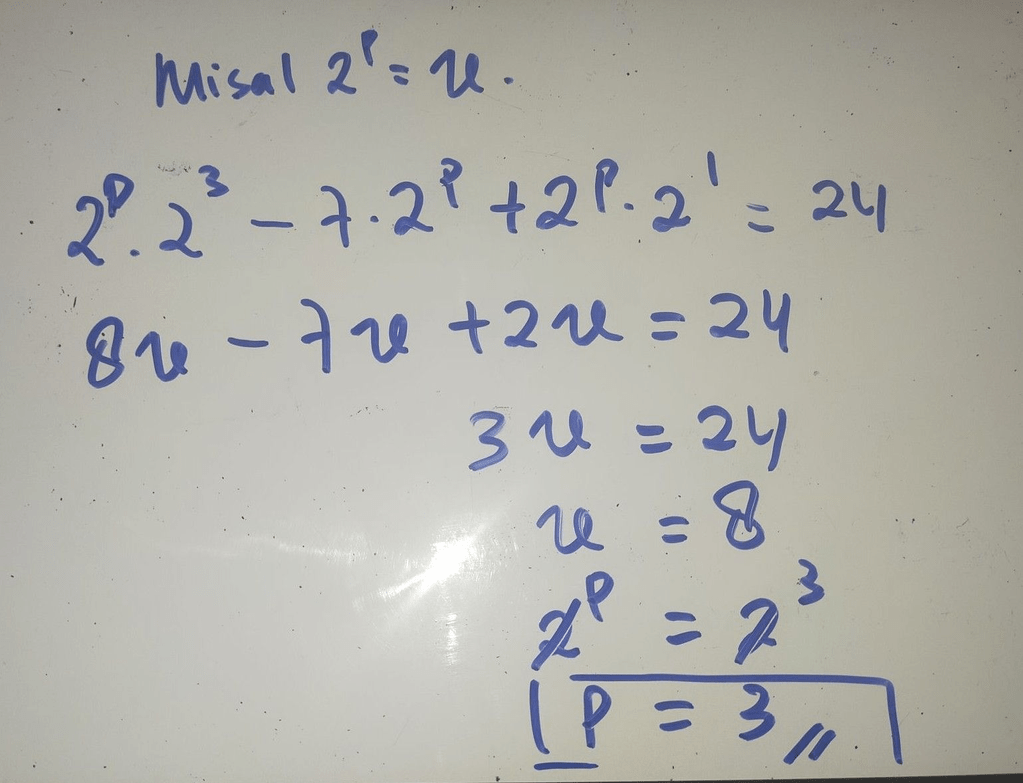 Misal 2^p = u.
2^p . 2^3 - 7 . 2^p + 2^p . 2^1 = 24
8u - 7u + 2u = 24
3u = 24
u = 8
2^p = 2^3
p = 3 //